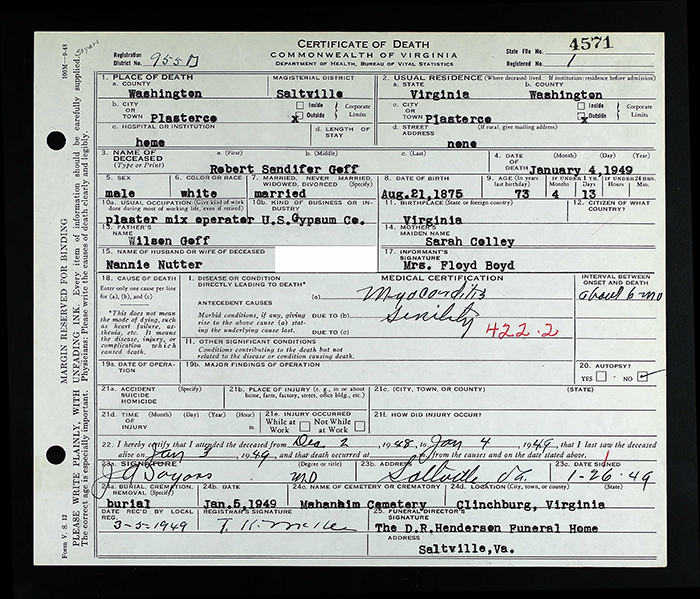 CERTIFICATE OF DEATH
COMMONWEALTH OF VIRGINIA
DEPARTMENT OF HEALTH, BUREAU OF VITAL STATISTICS
100M—9-48
Registration District No. 955D
State File No. 4571
Registered No. 1
1. PLACE OF DEATH
a. COUNTY
MAGISTERIAL DISTRICT
Washington Saltville
2. USUAL RESIDENCE (Where deceased lived. If institution: residence before admission)
a. STATE b. COUNTY
Virginia Washington
b. CITY OR TOWN Plasterco
Inside x Outside Corporate Limits
c. CITY OR TOWN Plasterco
Inside x Outside Corporate Limits
c. HOSPITAL OR INSTITUTION
home
d. LENGTH OF STAY
d. STREET ADDRESS (If rural, give mailing address)
none
3. NAME OF DECEASED (Type or Print)
a. (First) b. (Middle) c. (Last)
Robert Sandifer Goff
4. DATE OF DEATH (Month) (Day) (Year)
January 4,1949
5. SEX
male
6. COLOR OR RACE
white
7. MARRIED, NEVER MARRIED, WIDOWED, DIVORCED (Specify)
married
8. DATE OF BIRTH
Aug.21,1875
9. AGE (In years last birthday)
73
IF UNDER 1 YEAR
4 13
IF UNDER 24 HRS.
10a. USUAL OCCUPATION (Give kind of work done during most of working life, even if retired)
plaster mix operator
10b. KIND OF BUSINESS OR INDUSTRY
U.S.Gypsum Co.
11. BIRTHPLACE (State or foreign country)
Virginia
12. CITIZEN OF WHAT COUNTRY?
13. FATHER'S NAME
Wilson Goff
14. MOTHER'S MAIDEN NAME
Sarah Colley
15. NAME OF HUSBAND OR WIFE OF DECEASED
Nannie Nutter
17. INFORMANT'S SIGNATURE
Mrs. Floyd Boyd
18. CAUSE OF DEATH
Enter only one cause per line for (a), (b), and (c)
*This does not mean the mode of dying, such as heart failure, asthenia, etc. It means the disease, injury, or complication which caused death.
MEDICAL CERTIFICATION
INTERVAL BETWEEN ONSET AND DEATH
I. DISEASE OR CONDITION DIRECTLY LEADING TO DEATH*
(a) Myocarditis
about 6 mo
ANTECEDENT CAUSES
Morbid conditions, if any, giving rise to the above cause (a) stating the underlying cause last.
DUE TO (b) Senility
DUE TO (c)
422.2
II. OTHER SIGNIFICANT CONDITIONS
Conditions contributing to the death but not related to the disease or condition causing death.
19a. DATE OF OPERATION
19b. MAJOR FINDINGS OF OPERATION
20. AUTOPSY?
YES NO
21a. ACCIDENT SUICIDE HOMICIDE (Specify)
21b. PLACE OF INJURY (e. g., in or about home, farm, factory, street, office bldg., etc.)
21c. (CITY, TOWN, OR COUNTY) (STATE)
21d. TIME OF INJURY (Month) (Day) (Year) (Hour) m.
21e. INJURY OCCURRED
While at Work Not While at Work
21f. HOW DID INJURY OCCUR?
22. I hereby certify that I attended the deceased from Dec 2, 1948 to Jan 4, 1949, that I last saw the deceased
alive on Jan 3, 1949, and that death occurred at m., from the causes and on the date stated above.
23a. SIGNATURE (Degree or title)
MD
23b. ADDRESS
Saltville Va.
23c. DATE SIGNED
1-26-49
24a. BURIAL, CREMATION, REMOVAL (Specify)
burial
24b. DATE
Jan.5,1949
24c. NAME OF CEMETERY OR CREMATORY
Mahanaim Cemetery
24d. LOCATION (City, town, or county) (State)
Clinchburg, Virginia
DATE REC'D BY LOCAL REG.
3-5-1949
REGISTRAR'S SIGNATURE
25. FUNERAL DIRECTOR'S SIGNATURE
The D.R.Henderson Funeral Home
Saltville,Va.
MARGIN RESERVED FOR BINDING
PLEASE WRITE PLAINLY, WITH UNFADING INK. Every item of information should be carefully supplied.
The correct age is especially important. Physicians: Please write the causes of death clearly and legibly.
Form V. S. 12